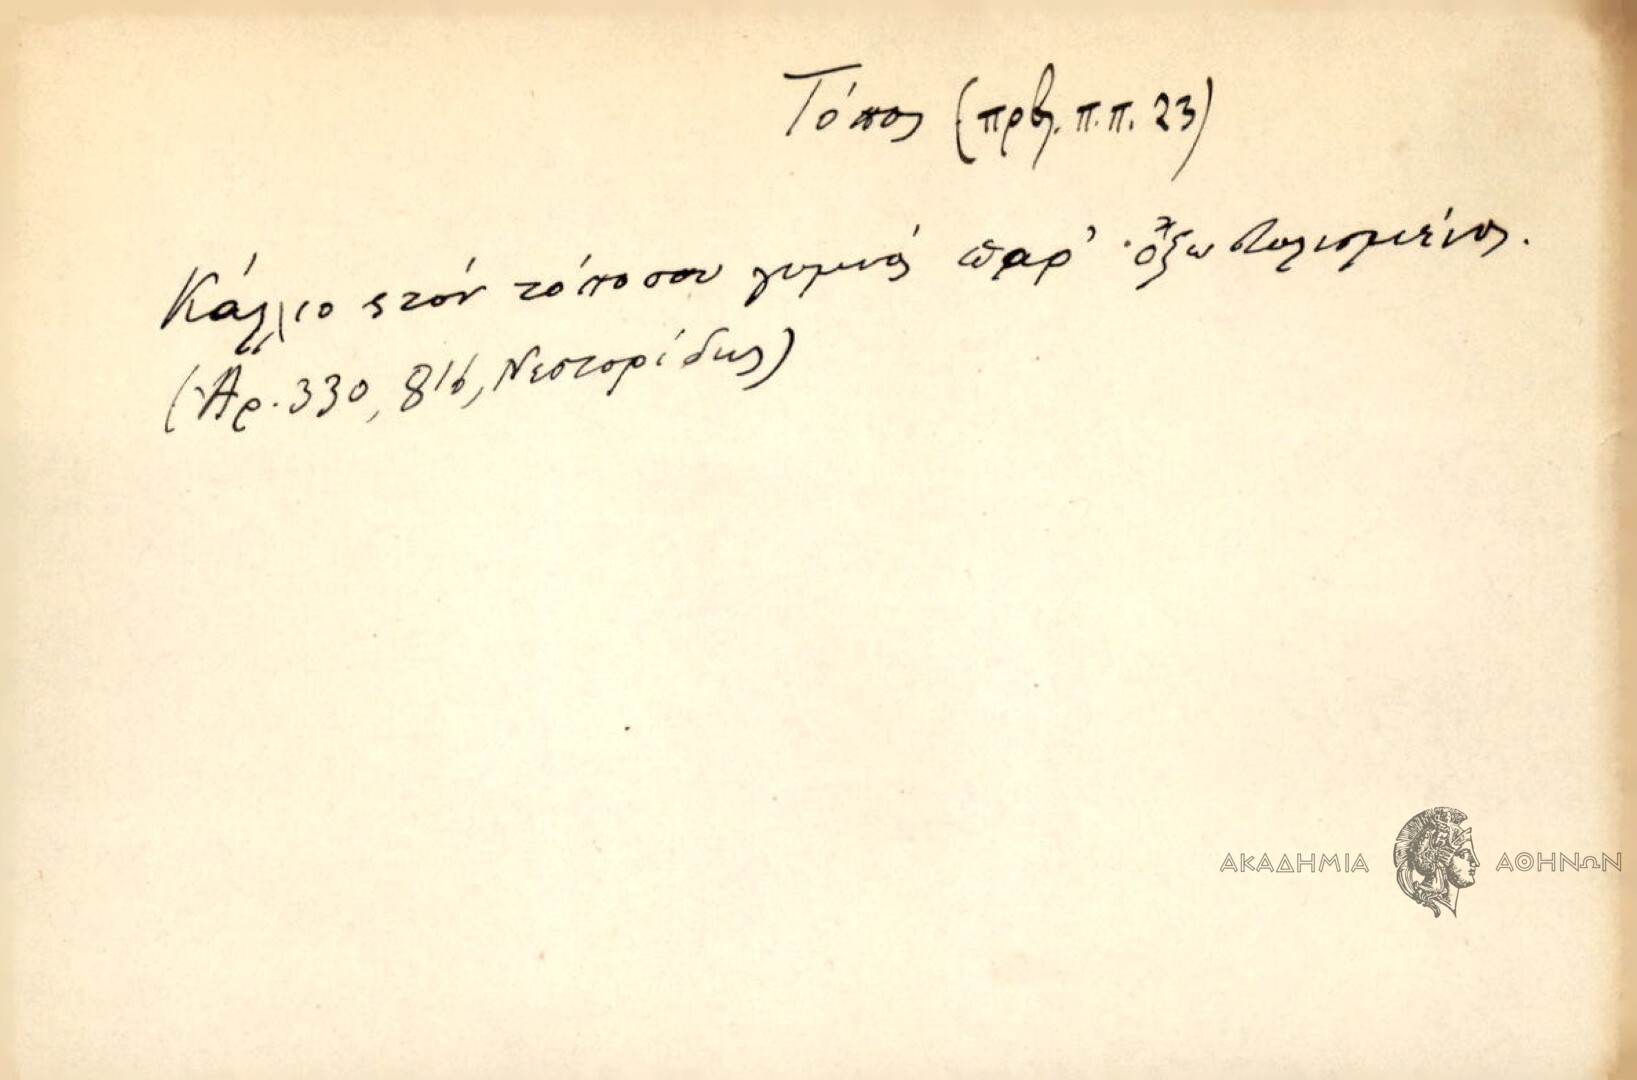 Τόπος (πρβλ. π.π. 23)
Κάλλιο ςτόν τόπο σου γυμνός παρ' ὄξω στολισμένος.
(Ἀρ. 330, 816, Νεστορίδης)
ΑΚΑΔΗΜΙΑ ΑΘΗΝΩΝ